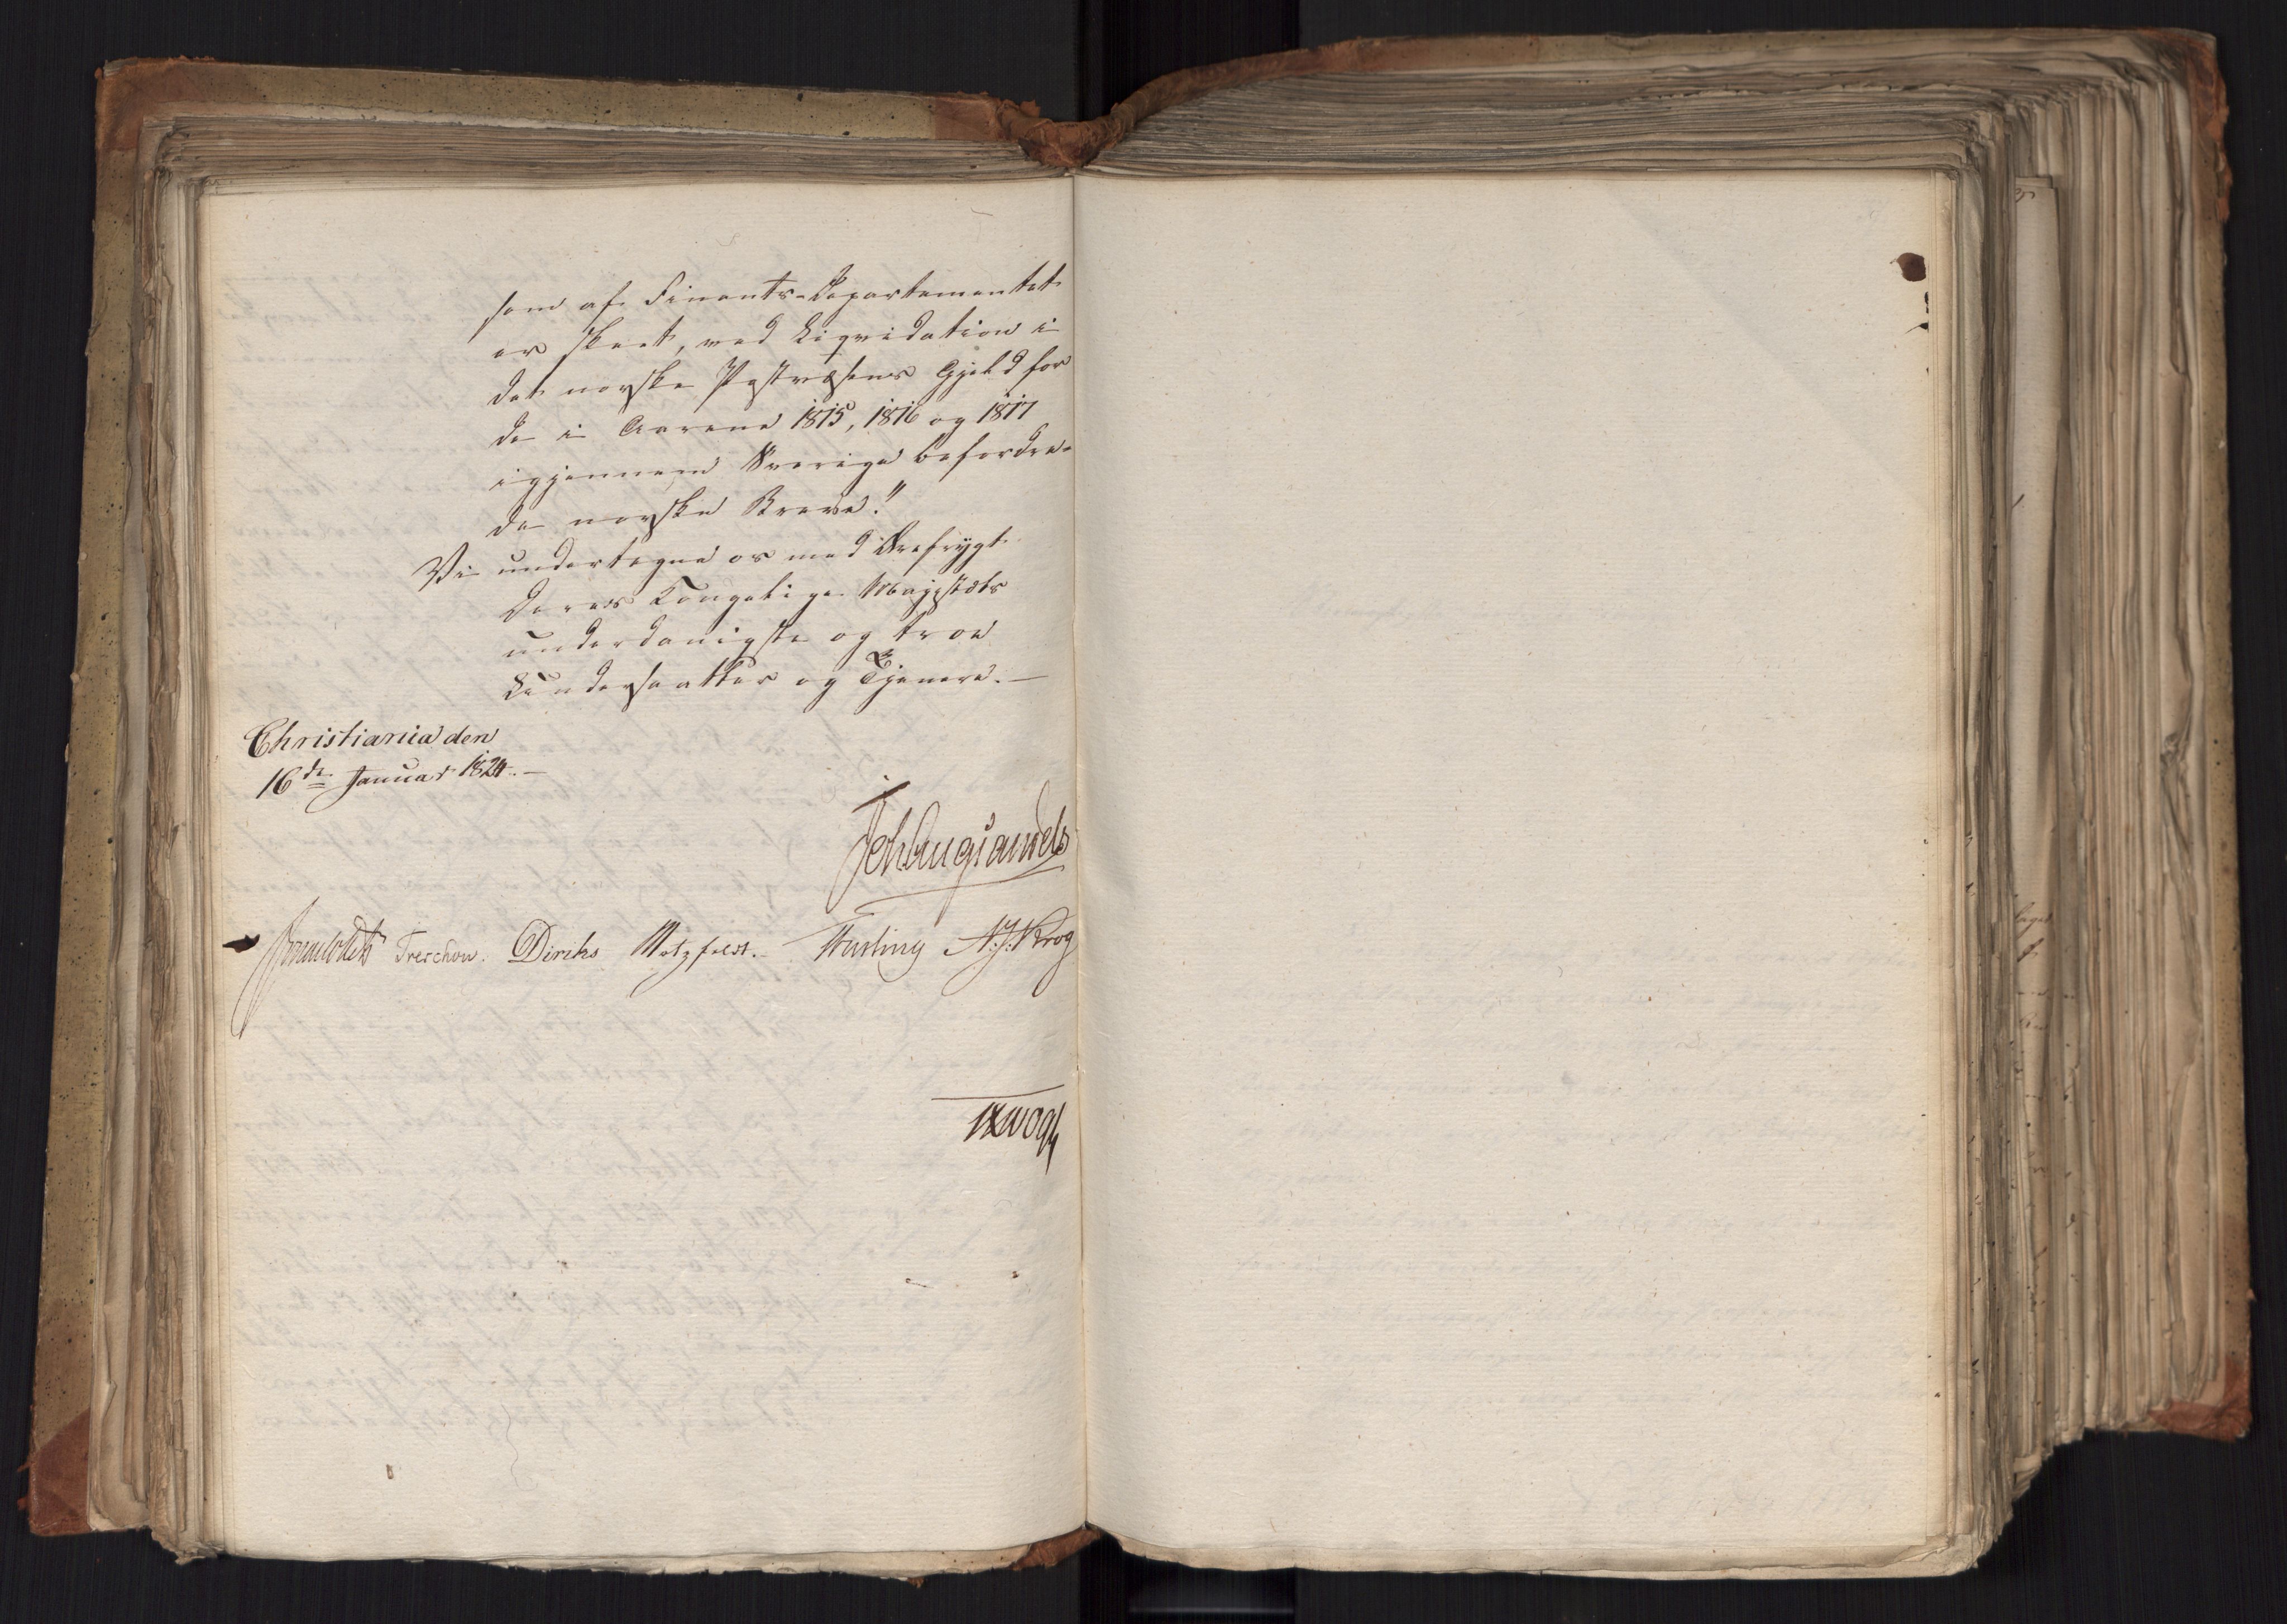 som af Finants-Departementet
er skeet, ved Liqvidation i
det norske Postvæsens Gjeld for
de i Aarene 1815, 1816 og 1817
igjennem Sverige befordre-
de norske Breve."
Vi undertegne os med Ærefrygt
Deres Kongelige Majestæts
underdanigste og troe
Undersaatter og Tjenere. —
Christiania den
16de Januar 1824. —
Joh Aug Sandels
Sommerhielm Treschow. Diriks Motzfeldt. Fasting A. J. Krog